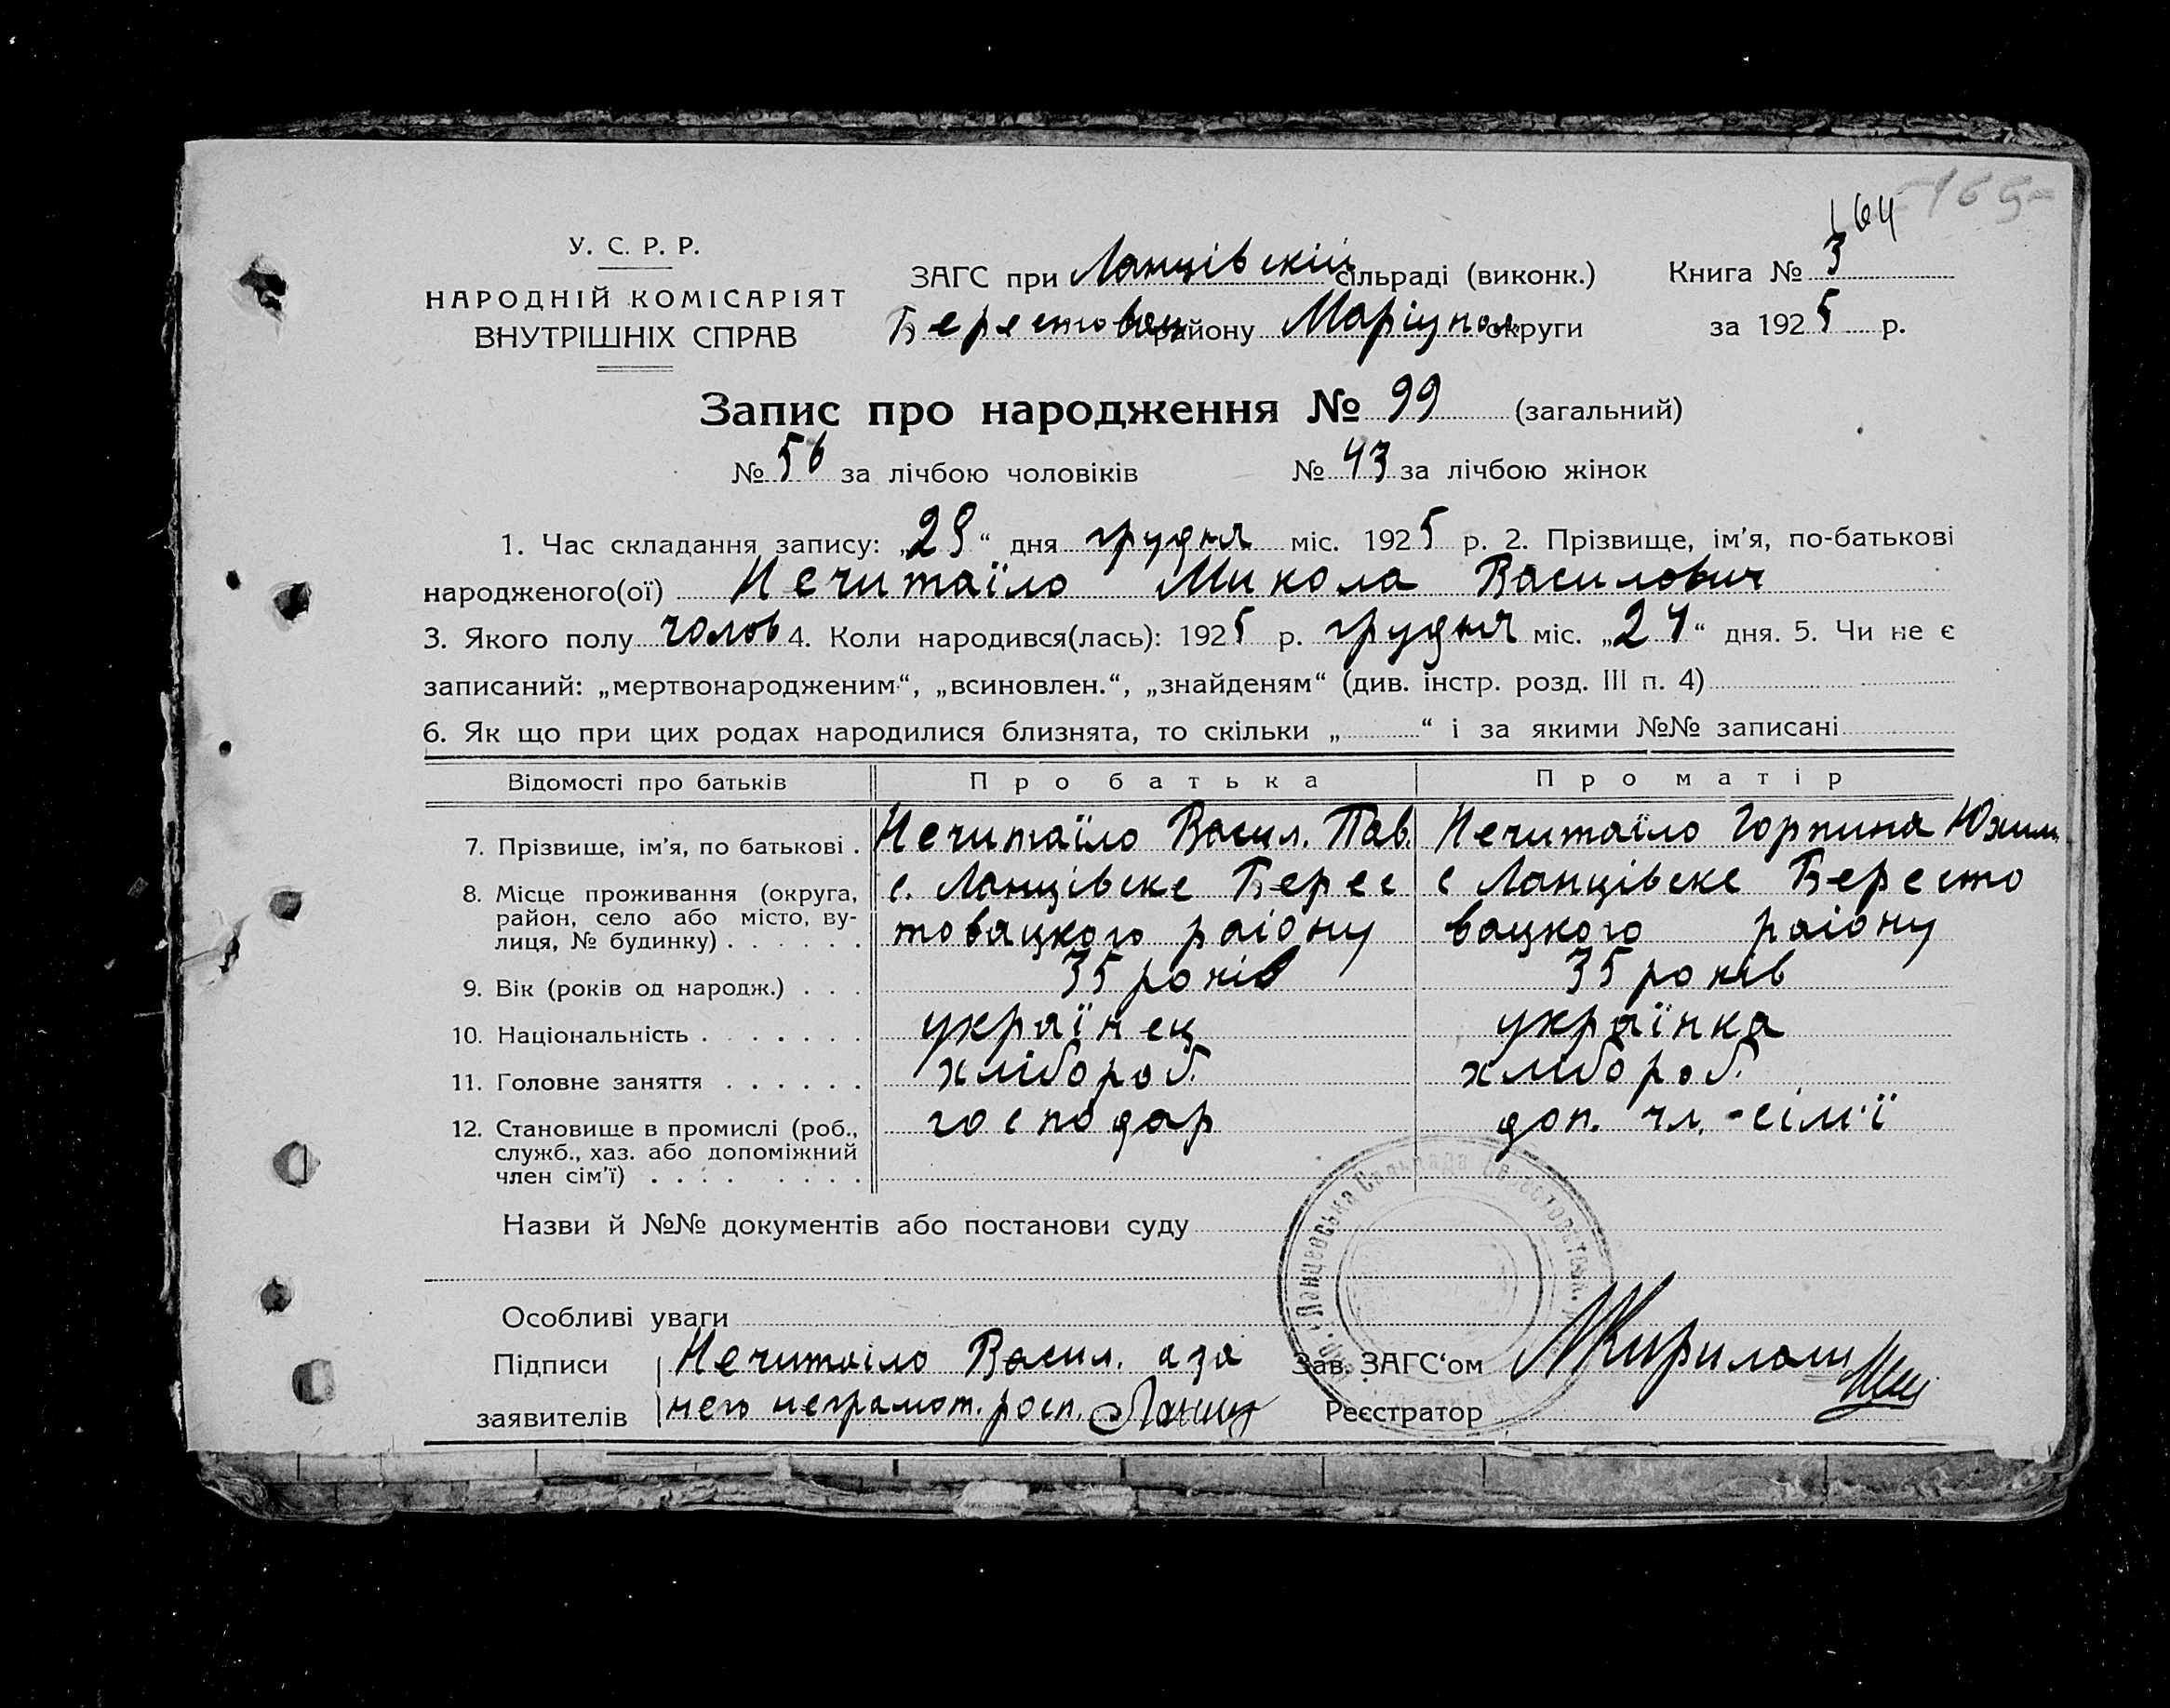 -165-
164
У. С. Р. Р.
НАРОДНІЙ КОМІСАРІЯТ
ВНУТРІШНІХ СПРАВ
ЗАГС при Ланцівскій сільраді (виконк.) Книга № 3
Берестовец району Маріупол округи за 1925 р.
Запис про народження № 99 (загальний)
№ 56 за лічбою чоловіків № 43 за лічбою жінок
1. Час складання запису: „29“ дня грудня міс. 1925 р. 2. Прізвище, ім'я, по-батькові
народженого(ої) Нечитаїло Микола Василович
3. Якого полу чолов 4. Коли народився(лась): 1925 р. грудня міс. „24“ дня. 5. Чи не є
записаний: „мертвонародженим“, „всиновлен.“, „знайденям“ (див. інстр. розд. III п. 4)
6. Як що при цих родах народилися близнята, то скільки „ “ і за якими №№ записані
Відомості про батьків Про батька Про матір
7. Прізвище, ім'я, по батькові . Нечитаїло Васил. Пав. Нечитаїло Горпина Юхим.
8. Місце проживання (округа, с. Ланцівске Берес с Ланцівске Бересто
район, село або місто, ву-
лиця, № будинку) . . . . . . товацкого раіону вацкого раіону
9. Вік (років од народж.) . . . 35 років 35 років
10. Національність . . . . . . . українец українка
11. Головне заняття . . . . . . хлібороб. хлібороб.
12. Становище в промислі (роб., господар доп. чл.-сім'ї
служб., хаз. або допоміжний
член сім'ї) . . . . . . . .
Назви й №№ документів або постанови суду
Особливі уваги
Підписи Нечитаіло Васил. аза Зав. ЗАГС‘ом
заявителів него неграмот. росп. Реєстратор